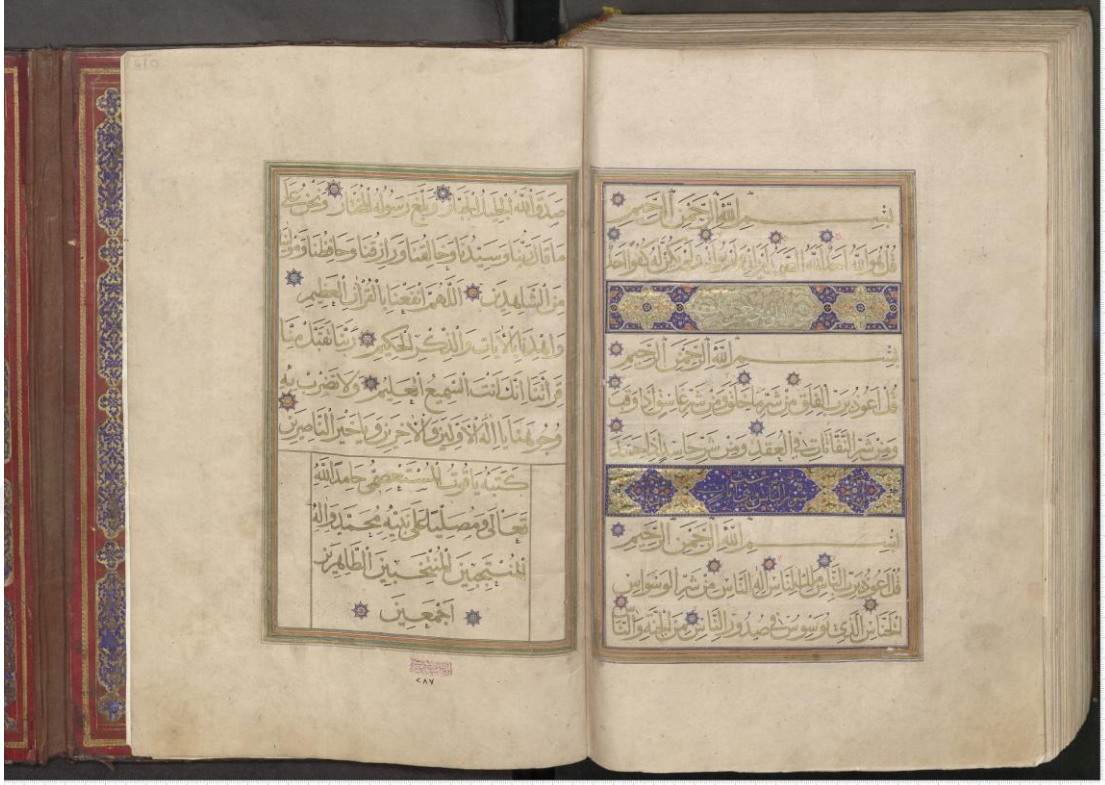 بسم الله الرحمن الرحيم
قل هو الله احد الله الصمد لم يلد ولم يولد ولم يكن له كفوا احد
بسم الله الرحمن الرحيم
قل اعوذ برب الفلق من شر ما خلق ومن شر غاسق اذا وقب
ومن شر النفاثات في العقد ومن شر حاسد اذا حسد
بسم الله الرحمن الرحيم
قل اعوذ برب الناس ملك الناس اله الناس من شر الوسواس
الخناس الذي يوسوس في صدور الناس من الجنة والناس
صدق الله الجليل الجبار وبلغ رسوله المختار ونحن على
ما قال ربنا وسيدنا وخالقنا ورازقنا وحافظنا ومولانا
من الشاهدين اللهم انفعنا بالقران العظيم
واهدنا بالايات والذكر الحكيم ربنا تقبل منا
قرائتنا انك انت السميع العليم ولا تضرب به
وجوهنا يا اله الاولين والاخرين ويا خير الناصرين
كتبه ياقوت المستعصمي حامدا لله
تعالى ومصليا على نبيه محمد واله
المنتجبين المنتخبين الطاهرين
اجمعين
٢٨٧